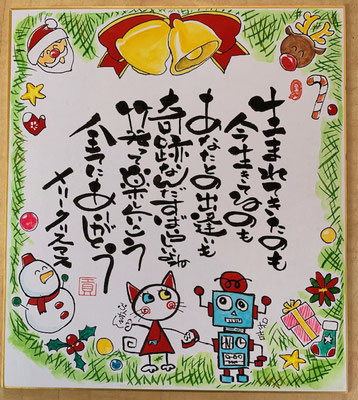 生まれてきたのも
今生きてるのも
あなたとの出逢いも
奇跡なんだすばらしいよね
笑って楽しもう
全てにありがとう
メリークリスマス